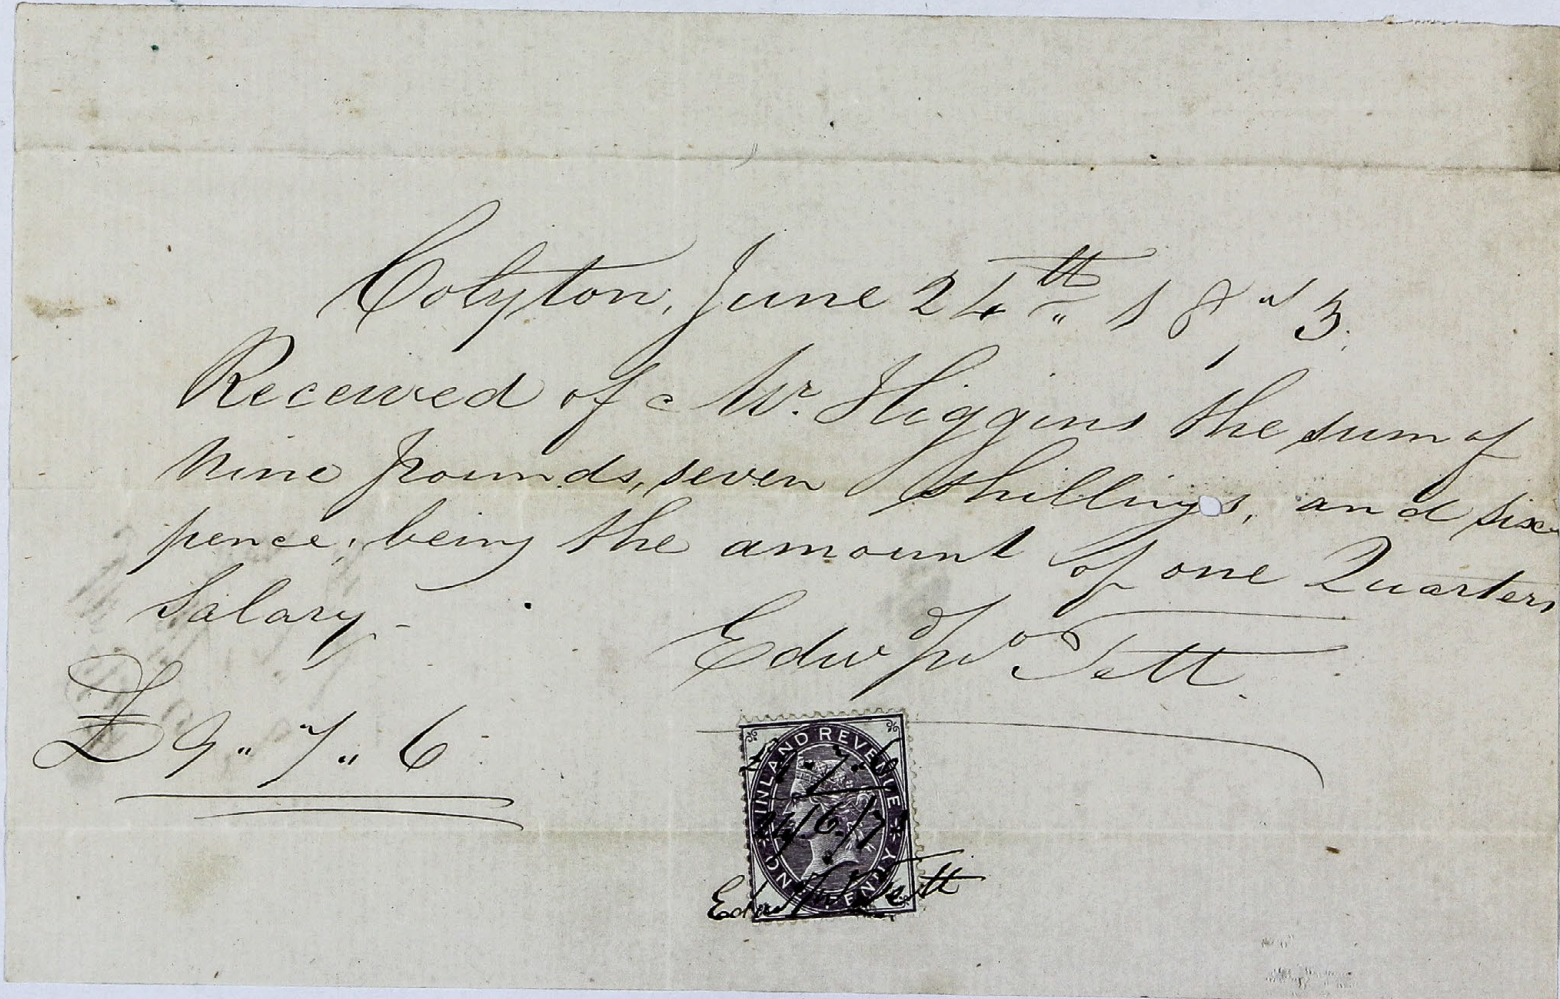 Colyton, June 24th 1873.
Received of Mr. Higgins the sum of
Nine pounds, seven shillings, and six
pence, being the amount of one Quarters
Salary -
Edwd Wm Tett.
£9 " 7 " 6
INLAND REVENUE
ONE PENNY
Tett